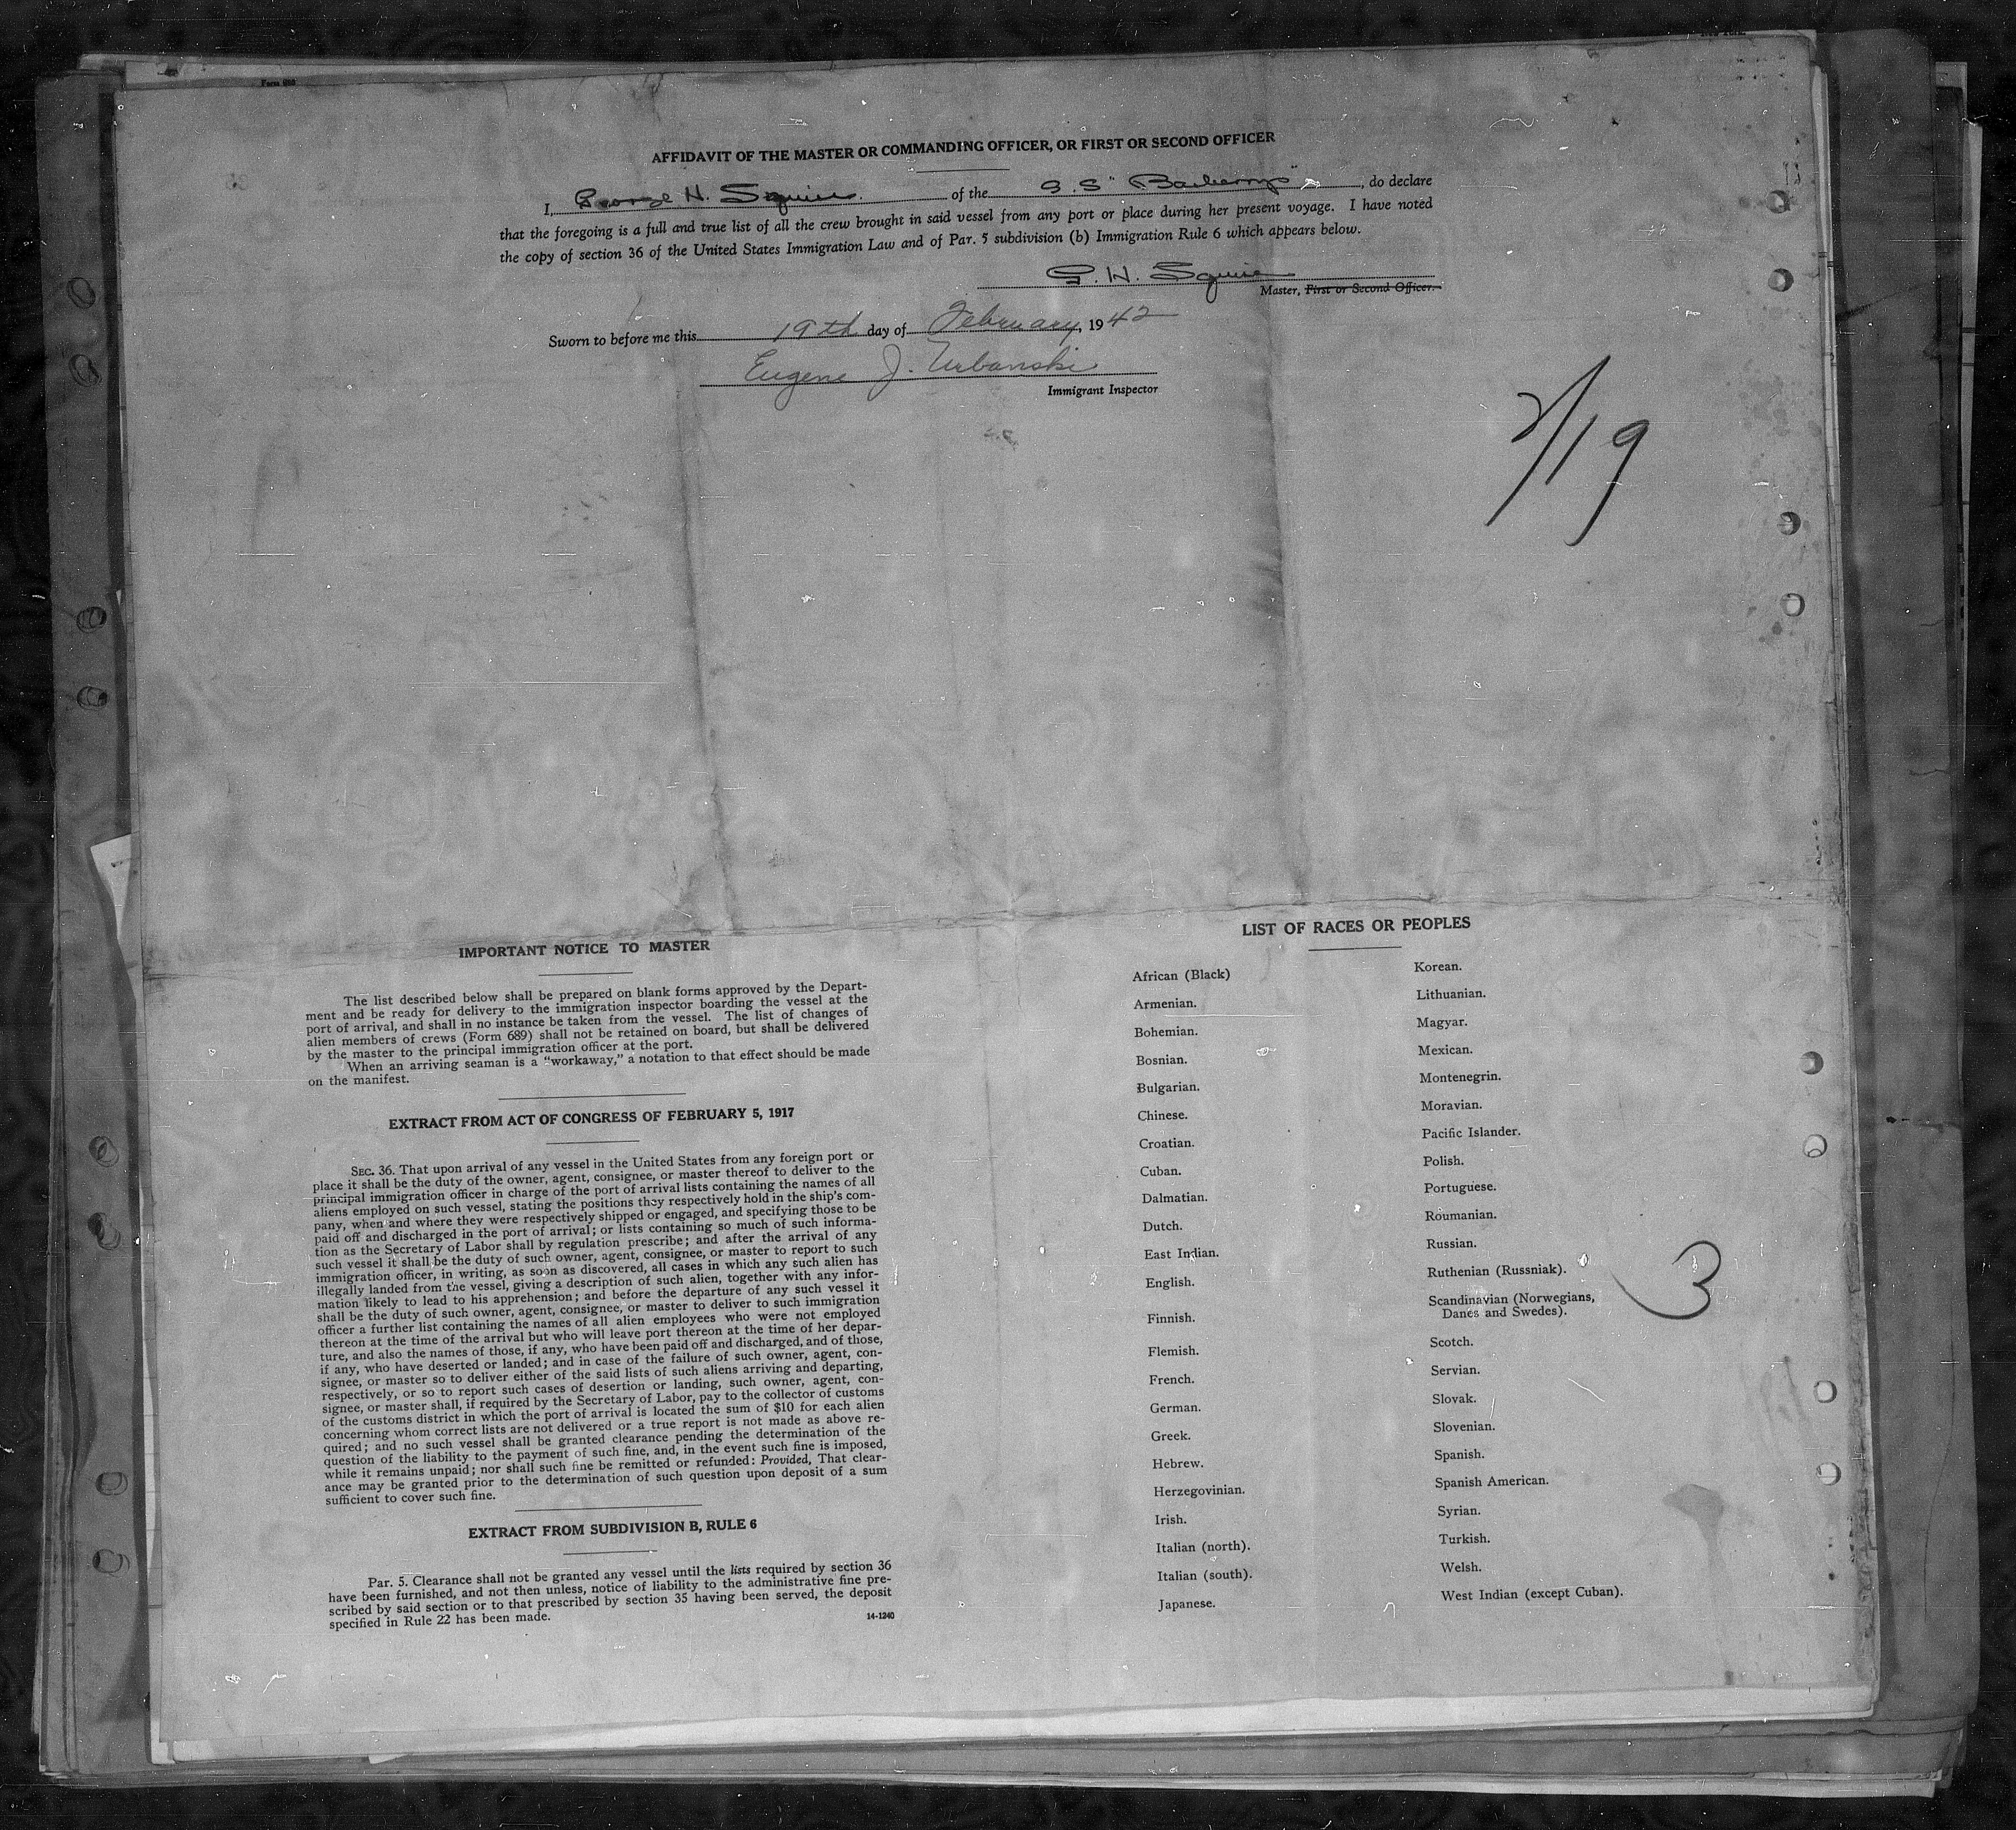 Form 689
AFFIDAVIT OF THE MASTER OR COMMANDING OFFICER, OR FIRST OR SECOND OFFICER
I, George H. Squire. of the S.S "Barberrys", do declare
that the foregoing is a full and true list of all the crew brought in said vessel from any port or place during her present voyage. I have noted
the copy of section 36 of the United States Immigration Law and of Par. 5 subdivision (b) Immigration Rule 6 which appears below.
G. H. Squire
Master, First or Second Officer.
Sworn to before me this 19th day of February, 1942
Eugene J. Urbanski
Immigrant Inspector
2/19
IMPORTANT NOTICE TO MASTER
The list described below shall be prepared on blank forms approved by the Depart-
ment and be ready for delivery to the immigration inspector boarding the vessel at the
port of arrival, and shall in no instance be taken from the vessel. The list of changes of
alien members of crews (Form 689) shall not be retained on board, but shall be delivered
by the master to the principal immigration officer at the port.
When an arriving seaman is a "workaway," a notation to that effect should be made
on the manifest.
EXTRACT FROM ACT OF CONGRESS OF FEBRUARY 5, 1917
SEC. 36. That upon arrival of any vessel in the United States from any foreign port or
place it shall be the duty of the owner, agent, consignee, or master thereof to deliver to the
principal immigration officer in charge of the port of arrival lists containing the names of all
aliens employed on such vessel, stating the positions they respectively hold in the ship's com-
pany, when and where they were respectively shipped or engaged, and specifying those to be
paid off and discharged in the port of arrival; or lists containing so much of such informa-
tion as the Secretary of Labor shall by regulation prescribe; and after the arrival of any
such vessel it shall be the duty of such owner, agent, consignee, or master to report to such
immigration officer, in writing, as soon as discovered, all cases in which any such alien has
illegally landed from the vessel, giving a description of such alien, together with any infor-
mation likely to lead to his apprehension; and before the departure of any such vessel it
shall be the duty of such owner, agent, consignee, or master to deliver to such immigration
officer a further list containing the names of all alien employees who were not employed
thereon at the time of the arrival but who will leave port thereon at the time of her depar-
ture, and also the names of those, if any, who have been paid off and discharged, and of those,
if any, who have deserted or landed; and in case of the failure of such owner, agent, con-
signee, or master so to deliver either of the said lists of such aliens arriving and departing,
respectively, or so to report such cases of desertion or landing, such owner, agent, con-
signee, or master shall, if required by the Secretary of Labor, pay to the collector of customs
of the customs district in which the port of arrival is located the sum of $10 for each alien
concerning whom correct lists are not delivered or a true report is not made as above re-
quired; and no such vessel shall be granted clearance pending the determination of the
question of the liability to the payment of such fine, and, in the event such fine is imposed,
while it remains unpaid; nor shall such fine be remitted or refunded: Provided, That clear-
ance may be granted prior to the determination of such question upon deposit of a sum
sufficient to cover such fine.
EXTRACT FROM SUBDIVISION B, RULE 6
Par. 5. Clearance shall not be granted any vessel until the lists required by section 36
have been furnished, and not then unless, notice of liability to the administrative fine pre-
scribed by said section or to that prescribed by section 35 having been served, the deposit
specified in Rule 22 has been made.
14-1240
LIST OF RACES OR PEOPLES
African (Black)
Armenian.
Bohemian.
Bosnian.
Bulgarian.
Chinese.
Croatian.
Cuban.
Dalmatian.
Dutch.
East Indian.
English.
Finnish.
Flemish.
French.
German.
Greek.
Hebrew.
Herzegovinian.
Irish.
Italian (north).
Italian (south).
Japanese.
Korean.
Lithuanian.
Magyar.
Mexican.
Montenegrin.
Moravian.
Pacific Islander.
Polish.
Portuguese.
Roumanian.
Russian.
Ruthenian (Russniak).
Scandinavian (Norwegians,
Danes and Swedes).
Scotch.
Servian.
Slovak.
Slovenian.
Spanish.
Spanish American.
Syrian.
Turkish.
Welsh.
West Indian (except Cuban).
3